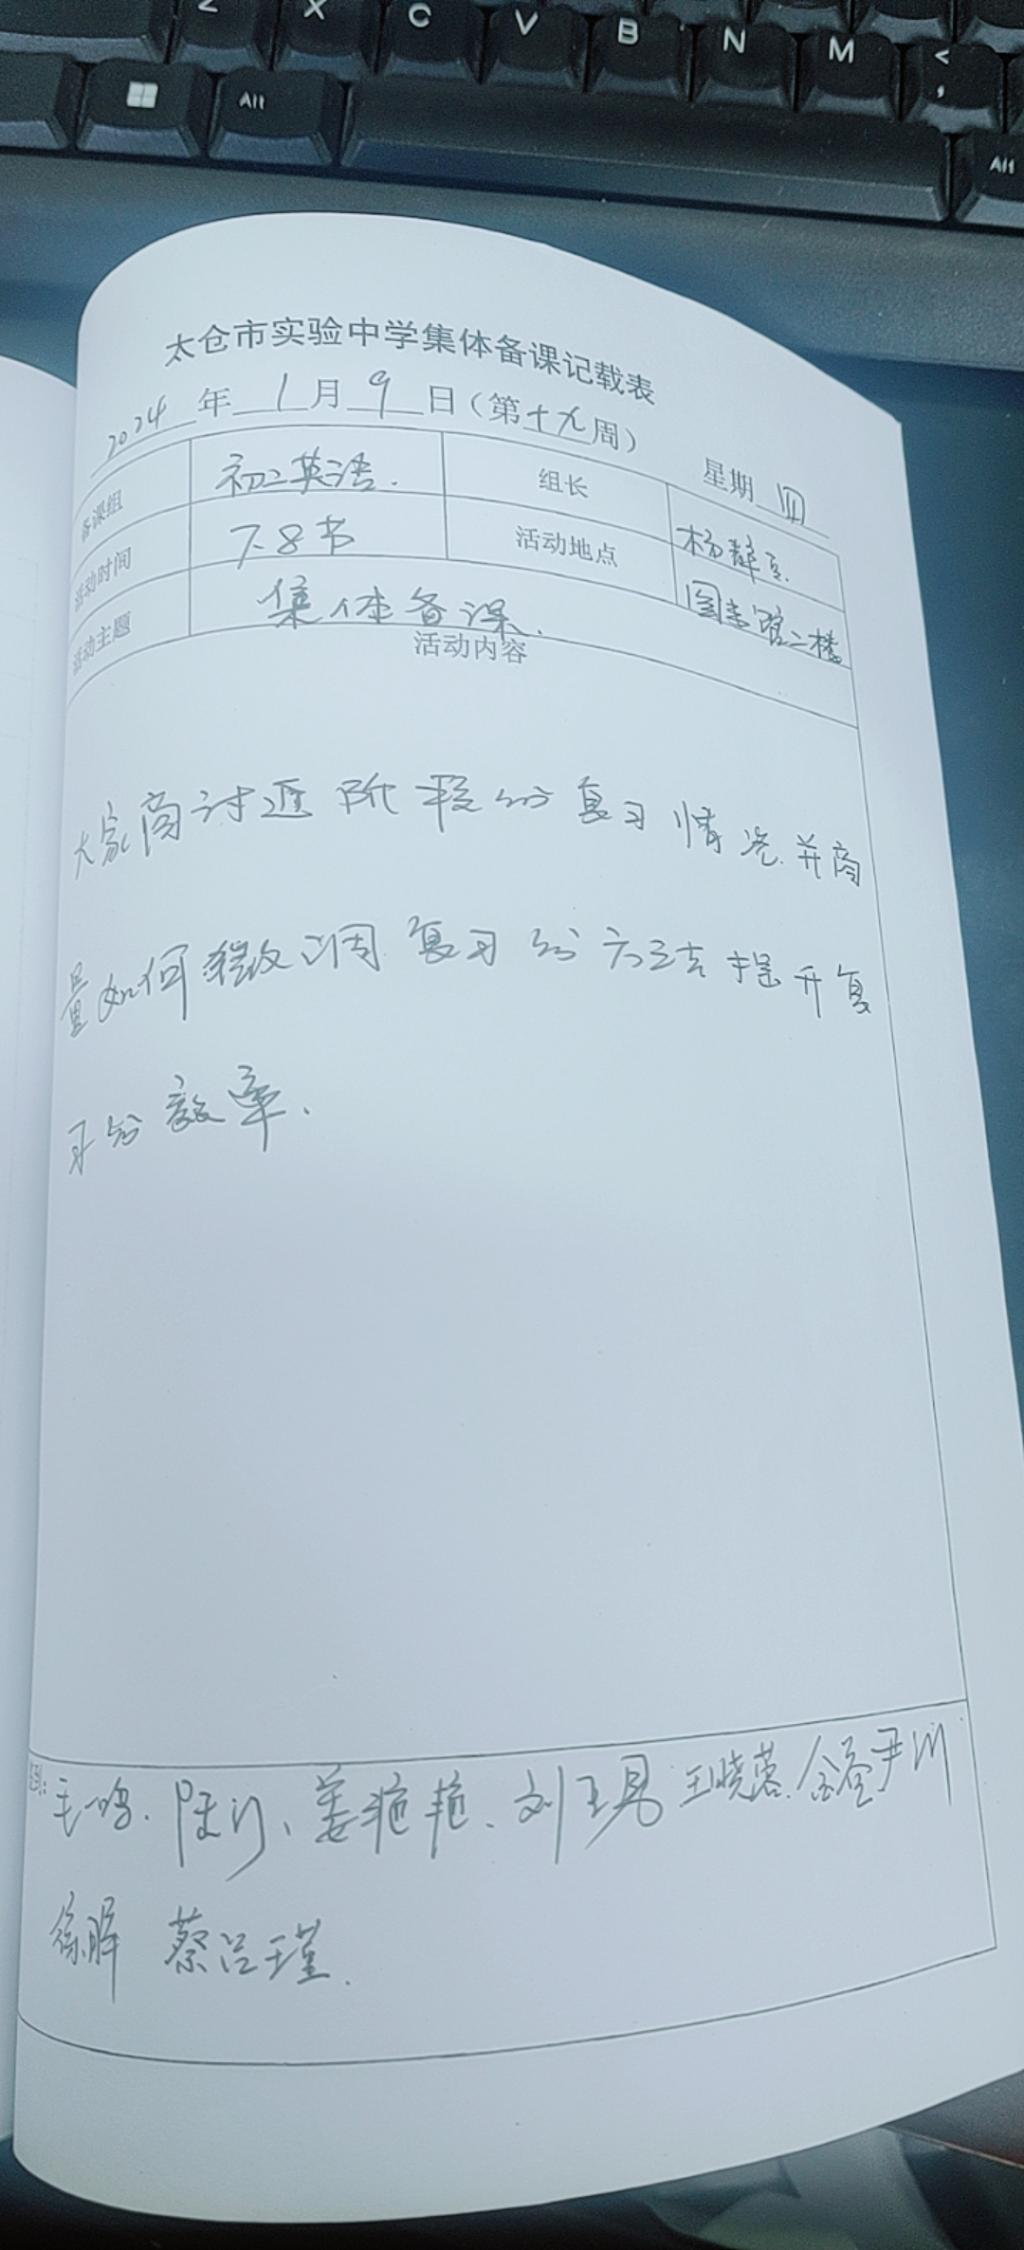 Z X C V B N M <
,
Alt Alt
太仓市实验中学集体备课记载表
2024年1月9日（第十九周） 星期四
备课组 初二英语. 组长 杨
活动时间 7.8节 活动地点 图书馆二楼
活动主题 集体备课.
活动内容
大家商讨近阶段的复习情况.并商
量如何微调复习的方法提升复
习的效率.
毛一鸣. 陈、姜艳艳、刘玉 王晓蓉. 金 尹川
徐晖 蔡吕瑾.